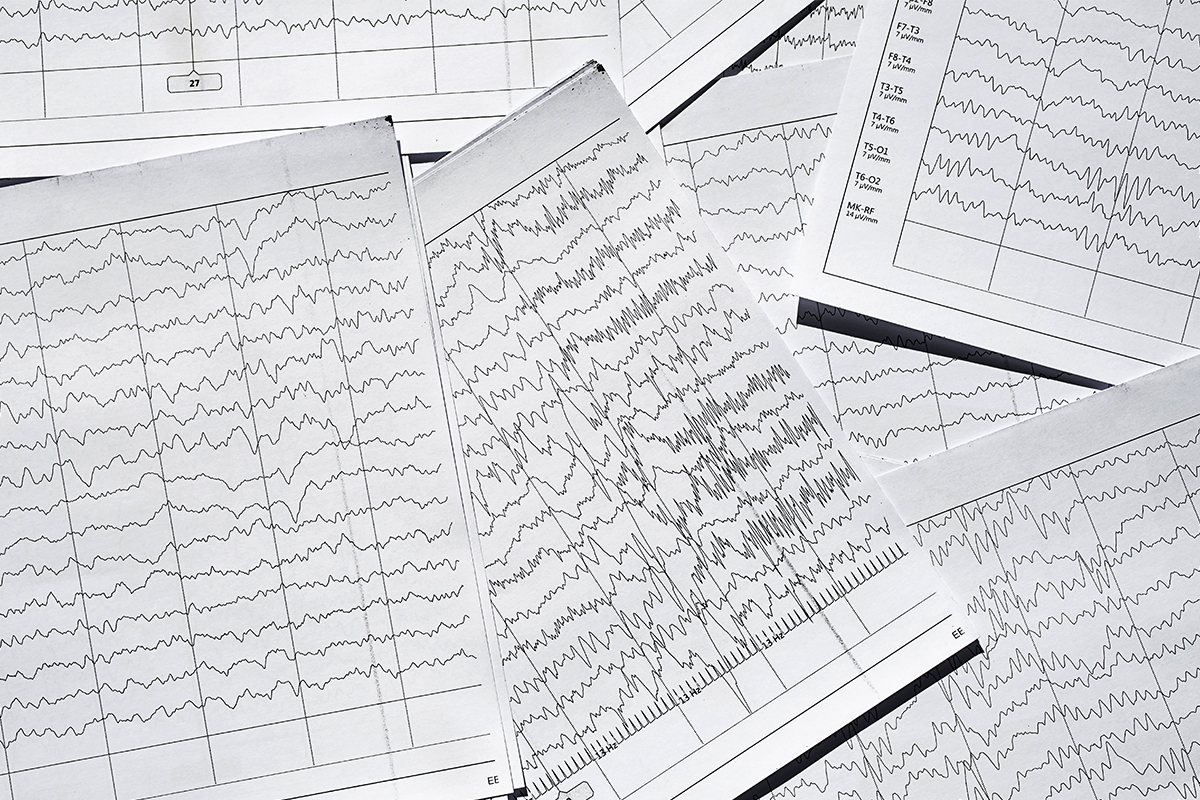 27
F7-T3
7 µV/mm
F8-T4
7 µV/mm
T3-T5
7 µV/mm
T4-T6
7 µV/mm
T5-O1
7 µV/mm
T6-O2
7 µV/mm
MK-RF
14 µV/mm
13 Hz
13 Hz
13 Hz
EE
EE